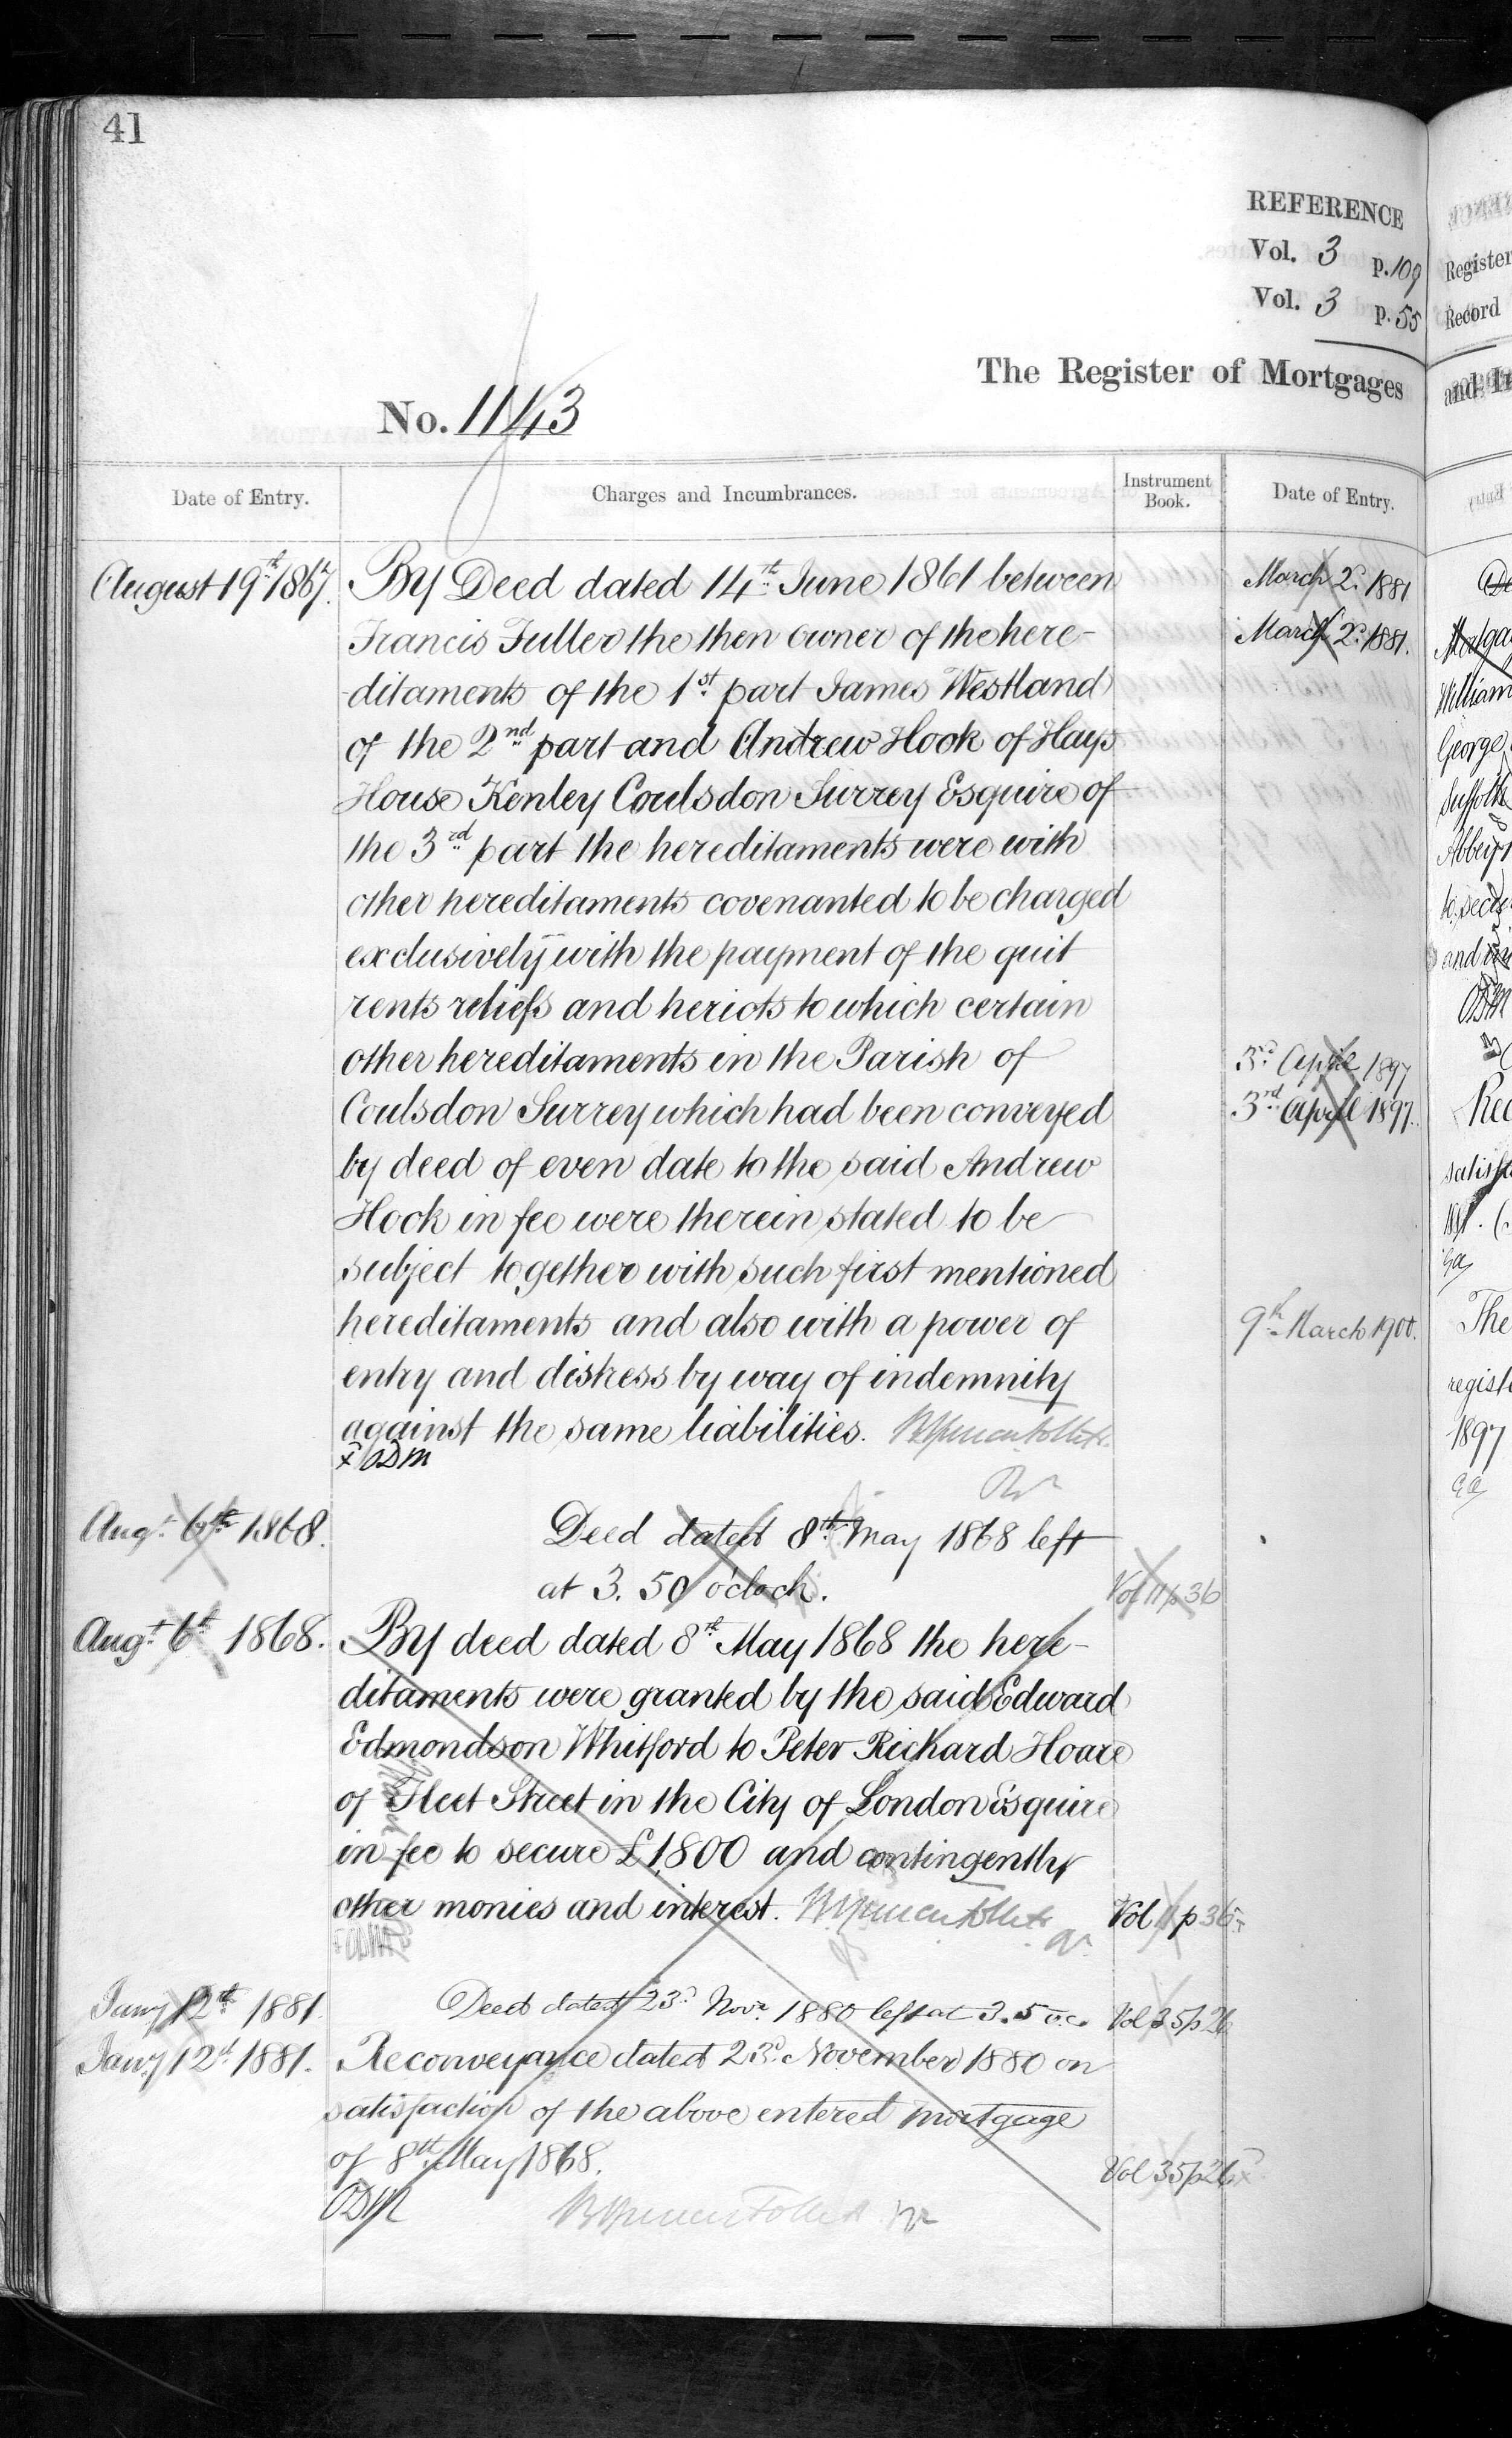 41
REFERENCE
Vol. 3 p. 109
Vol. 3 p. 55
Register
Record
The Register of Mortgages
No. 1143
Date of Entry.
Charges and Incumbrances.
Instrument Book.
Date of Entry.
August 19th 1867.
By Deed dated 14th June 1861 between
Francis Fuller the then owner of the here-
ditaments of the 1st part James Westland
of the 2nd part and Andrew Hook of Hays
House Kenley Coulsdon Surrey Esquire of
the 3rd part the hereditaments were with
other hereditaments covenanted to be charged
exclusively with the payment of the quit
rents reliefs and heriots to which certain
other hereditaments in the Parish of
Coulsdon Surrey which had been conveyed
by deed of even date to the said Andrew
Hook in fee were therein stated to be
subject together with such first mentioned
hereditaments and also with a power of
entry and distress by way of indemnity
against the same liabilities.
x ODM
Augt. 6th 1868.
Deed dated 8th May 1868 left
at 3.50 o'clock.
Vol 11 p 36
Augt. 6th 1868.
By deed dated 8th May 1868 the here-
ditaments were granted by the said Edward
Edmondson Whitford to Peter Richard Hoare
of Fleet Street in the City of London Esquire
in fee to secure £1,800 and contingently
other monies and interest.
Vol 11 p 36
Jany 12th 1881
Deed dated 23d Novr. 1880 left at 3.5 o.c.
Vol 35 p 26
Jany 12th 1881.
Reconveyance dated 23d November 1880 on
satisfaction of the above entered mortgage
of 8th May 1868.
Vol 35 p 26
ODM
March 2d 1881
March 2d 1881.
3rd April 1897
3rd April 1897.
9th March 1900.
William
George
Suffolk
The
1897